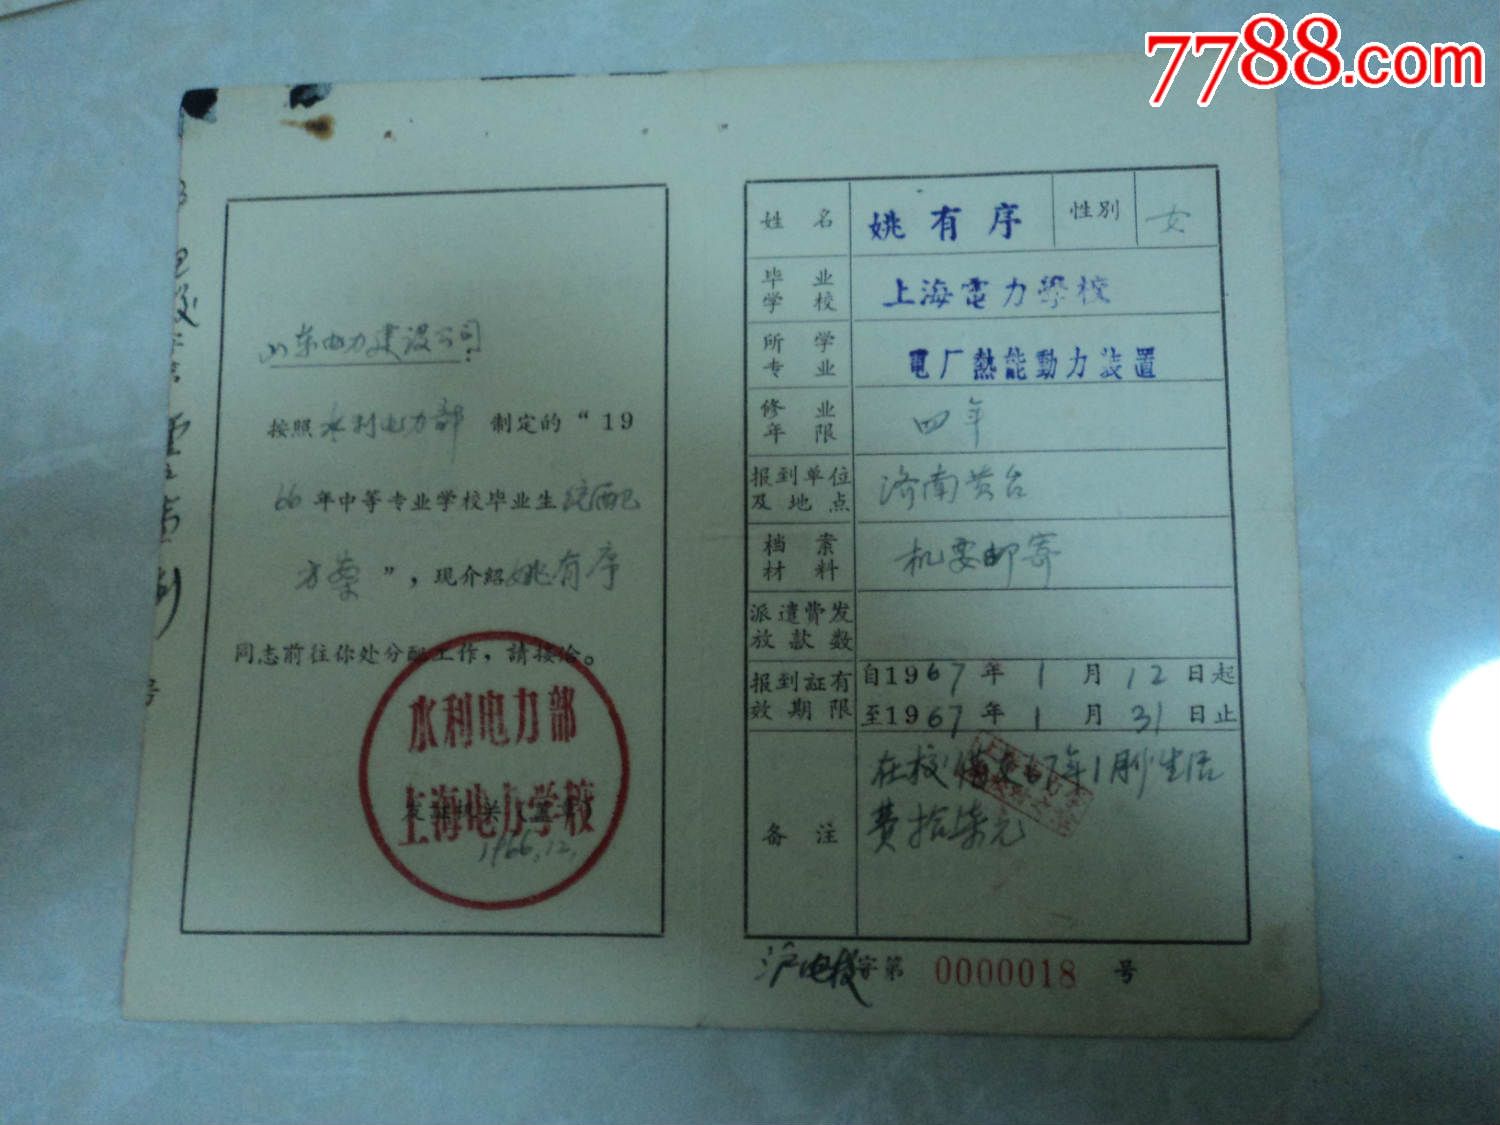 7788.com
山东电力建设公司：
按照水利电力部 制定的“19
66年中等专业学校毕业生统配
方案”，现介紹姚有序
同志前往你处分配工作，請接洽。
水利电力部
上海电力学校
1966.12.
姓名 姚有序 性別 女
毕业学校 上海電力學校
所学专业 電厂熱能動力装置
修业年限 四年
报到单位及地点 济南黄台
档案材料 机要邮寄
派遣費发放款数
报到証有效期限 自1967年1月12日起
至1967年1月31日止
备注 在校借支67年1月份生活
费拾柒元
沪电校字第 0000018 号
号